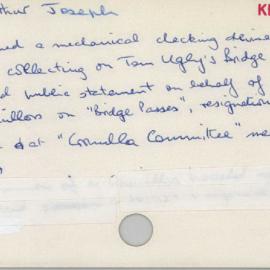 thur Joseph
KE
ed a mechanical checking device
collecting on Tom Ugly's Bridge
d public statement on behalf of
illors on "Bridge Passes", resignation
at "Cronulla Committee" me